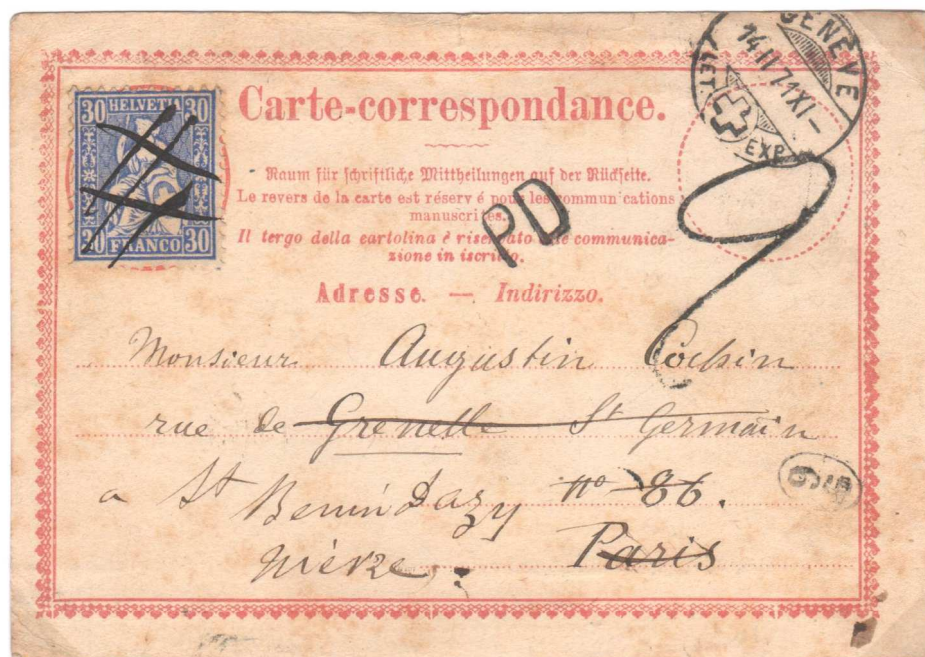 GENÈVE
14 II 71 XI–
LET. EXP.
30 HELVETIA 30
30 FRANCO 30
Carte-correspondance.
Raum für schriftliche Mittheilungen auf der Rückseite.
Le revers de la carte est réservé pour les communications
manuscrites.
Il tergo della cartolina é riservato alle communica-
zione in iscritto.
PD
9
Adresse. — Indirizzo.
Monsieur Augustin Cochin
rue de Grenelle St Germain
a St Benin Dazy no 86.
Nièvre. Paris